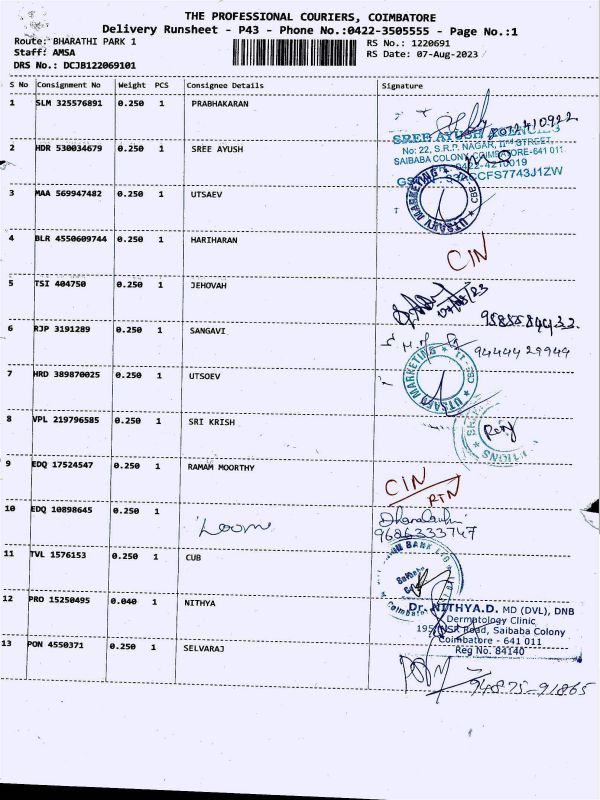 THE PROFESSIONAL COURIERS, COIMBATORE
Delivery Runsheet - P43 - Phone No.:0422-3505555 - Page No.:1
Route: BHARATHI PARK 1
RS No.: 1220691
Staff: AMSA
RS Date: 07-Aug-2023
DRS No.: DCJB122069101
S No Consignment No Weight PCS Consignee Details Signature
1 SLM 325576891 0.250 1 PRABHAKARAN
2 HDR 530034679 0.250 1 SREE AYUSH
SREE AYUSH
No: 22, S.R.P. NAGAR, IInd STREET,
SAIBABA COLONY, COIMBATORE-641 011
0422-4210019
3 MAA 569947482 0.250 1 UTSAEV
UTSAEV MARKETING CBE
4 BLR 4550609744 0.250 1 HARIHARAN
CIN
5 TSI 404750 0.250 1 JEHOVAH
6 RJP 3191289 0.250 1 SANGAVI
94444 29949
7 HRD 389870025 0.250 1 UTSOEV
UTSAEV MARKETING CBE
8 VPL 219796585 0.250 1 SRI KRISH
9 EDQ 17524547 0.250 1 RAMAM MOORTHY
CIN
RTN
10 EDQ 10898645 0.250 1
9686333747
11 TVL 1576153 0.250 1 CUB
BANK LTD
Coimbatore
12 PRO 15250495 0.040 1 NITHYA
Dr. NITHYA.D. MD (DVL), DNB
Dermatology Clinic
195, NSR Road, Saibaba Colony
Coimbatore - 641 011
Reg No. 84140
13 PON 4550371 0.250 1 SELVARAJ
94875-91865